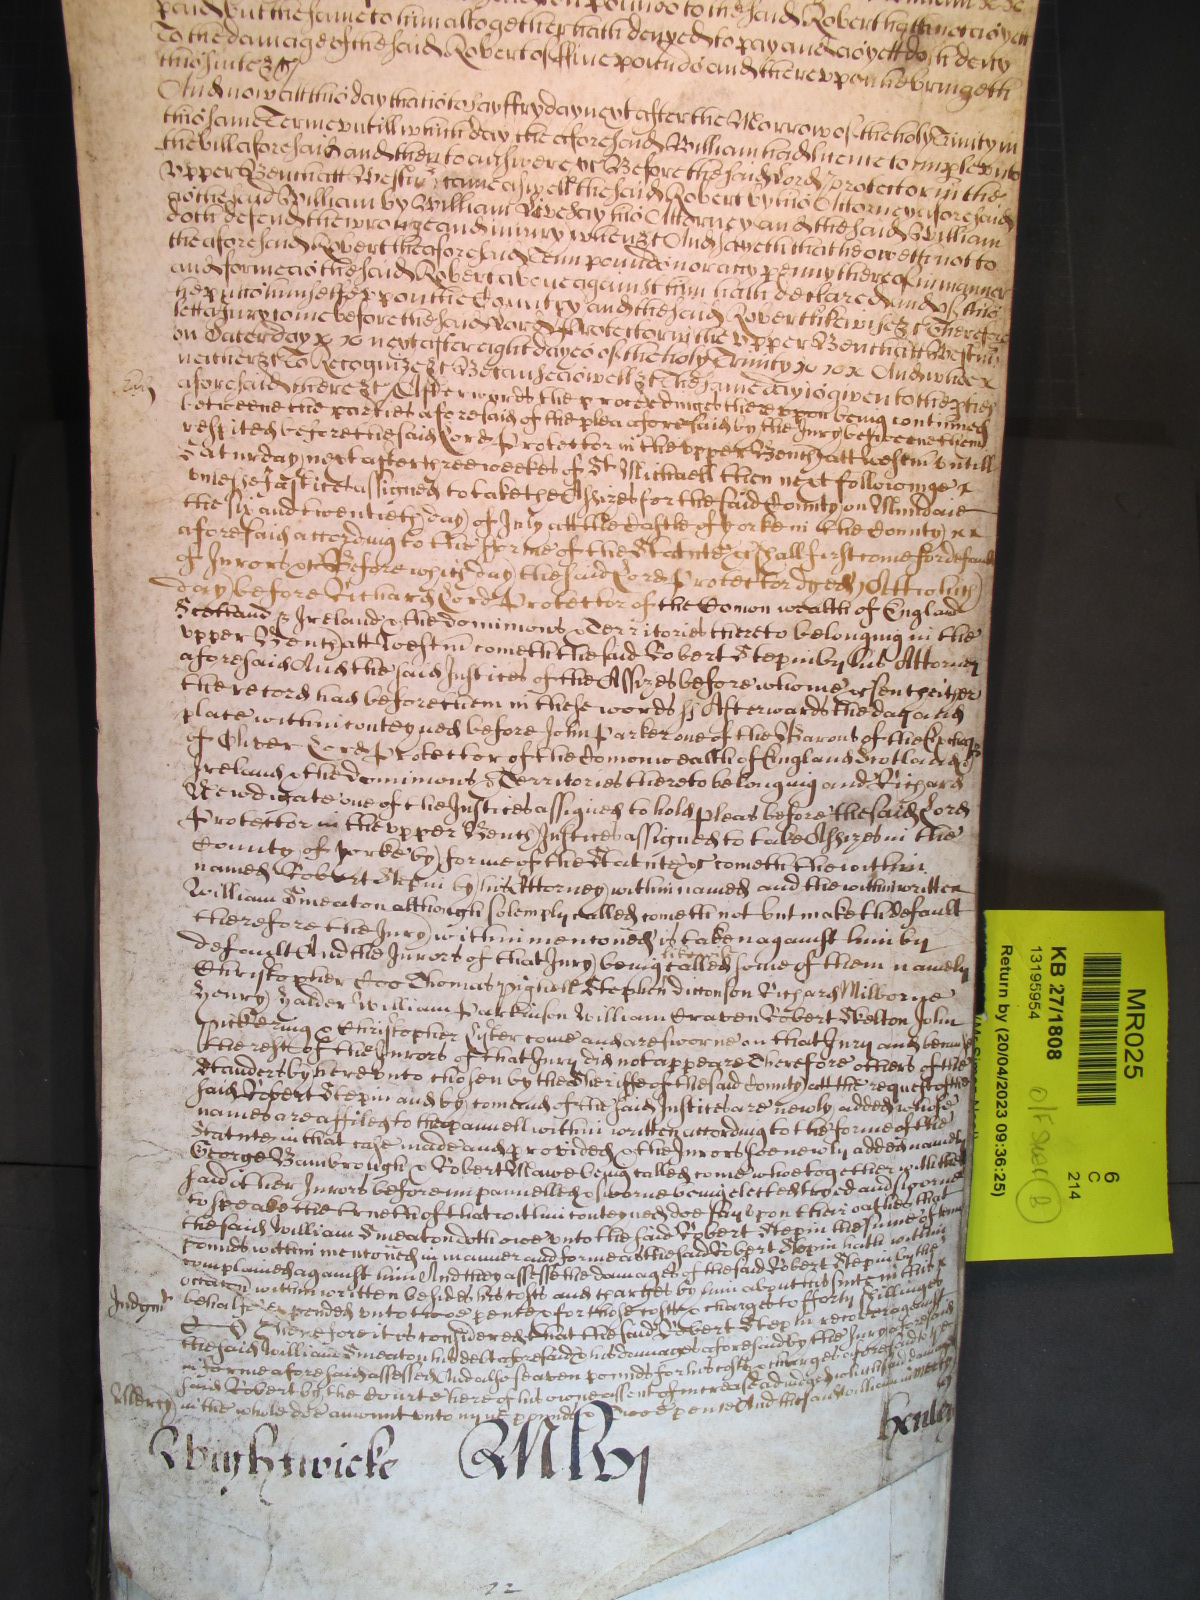 paid but the same to him altogether hath denyed to pay and as yett doth deny
To the damage of the said Robert of five pounds and thereupon he bringeth
this suite &c
And now att this day that is to say ffryday next after the Morrow of the holy Trinity in
this same Terme untill which day the aforesaid William had lycence to imparle unto
the bill aforesaid and then to answere &c Before the said Lord Protector in the
upper Bench att Westm came aswell the said Robert by his Attorney aforesaid
as the said William by William Livesay his Attorney and the said William
doth defend the wronge and injury when &c And sayeth that he oweth not to
the aforesaid Robert the aforesaid Tenn pounds nor any penny thereof in manner
and forme as the said Robert above against him hath declared and of this
he puts himselfe uppon the Country and the said Robert likewise &c Therefore
lett a Jury come before the said Lord Protector in the upper Bench att Westm
on Saturday x xx next after eight dayes of the holy Trinity x xx x And who x
neither &c To Recognize &c Because aswell &c The same day is given to the pties
aforesaid there &c Afterwards the proceedinges thereuppon being continued
betweene the parties aforesaid of the plea aforesaid by the Jury betweene them
respited before the said Lord Protector in the upper Bench att Westm untill
Saturday next after three weekes of St Michaell then next followinge x
unlesse Justices assigned to take the Assizes for the said County on Munday
the six and twentieth day of July att the Castle of Yorke in the County xx
aforesaid according to the forme of the Statute &c shall first come for default
of Jurors &c Before which day the said Lord Protector dyed Att which
day before Richard Lord Protector of the Comon wealth of England
Scotland & Ireland & the dominions & Territories thereto belonging in the
upper Bench att Westm cometh the said Robert Stepin by his Attorney
aforesaid And the said Justices of the Assizes before whome &c sent hither
the record had before them in these words ss Afterwards the day and
place within conteyned before John Parker one of the Barons of the Excheqr
of Oliver Lord Protector of the Comonwealth of England Scotland &
Ireland & the dominions & Territories thereto belonging and Richard
Newdigate one of the Justices assigned to hold pleas before the said Lord
Protector in the upper Bench Justices assigned to take Assizes in the
County of Yorke by forme of the Statute &c cometh the within
named Robert Stepin by his Attorney within named and the within written
William Smeaton although solemply called cometh not but maketh default
therefore the Jury within mentoned is taken against him by
default And the Jurors of that Jury being likewise called some of them namely
Christopher Coo Thomas Stephen Dickonson Richard Milborne
Henry William Parkinson William Craven Robert Skelton John
Pickering & Christopher Lyster come and are sworne on that Jury and because
the rest of the Jurors of that Jury did not appeare Therefore others of the
Standers by hereunto chosen by the Sheriffe of the said County att the request of the
said Robert Stepin and by comand of the said Justices are newly added whose
names are affiled to the pannell within written according to the forme of the
Statute in that case made and provided & the Jurors soe newly added namely
George Bambrough & Robert Mawe being called come who together with the
said other Jurors before impannelled & sworne being elected tryed and sworne
to speake the trueth of that within conteyned doe say upon their oathes that
the said William Smeaton doth owe unto the said Robert Stepin the summe of tenn
pounds within mentoned in manner and forme as the said Robert Stepin hath within
complained against him And they assesse the damages of the said Robert Stepin by the
occasion within written besides his costs and charges by him about his suite in this x
behalfe expended unto twoe pence & for those costs & charges to fforty shillinges
Therefore it is considered that the said Robert Stepin recover against
the said William Smeaton his debt aforesaid & his damages aforesaid by the Jury aforesaid
in forme aforesaid assessed And also seaven pounds for his costs & charges aforesaid to the
said Robert by the Courte here of his owne assent of increase adjudged which said damages
in the whole doe amount unto nyne pounds & twoe pence And the said William in mercy
Judgmt
Mercy
Wightwicke
Henley
22
MR025
KB 27/1808
13195954
Return by (20/04/2023 09:36:25)
6
C
214